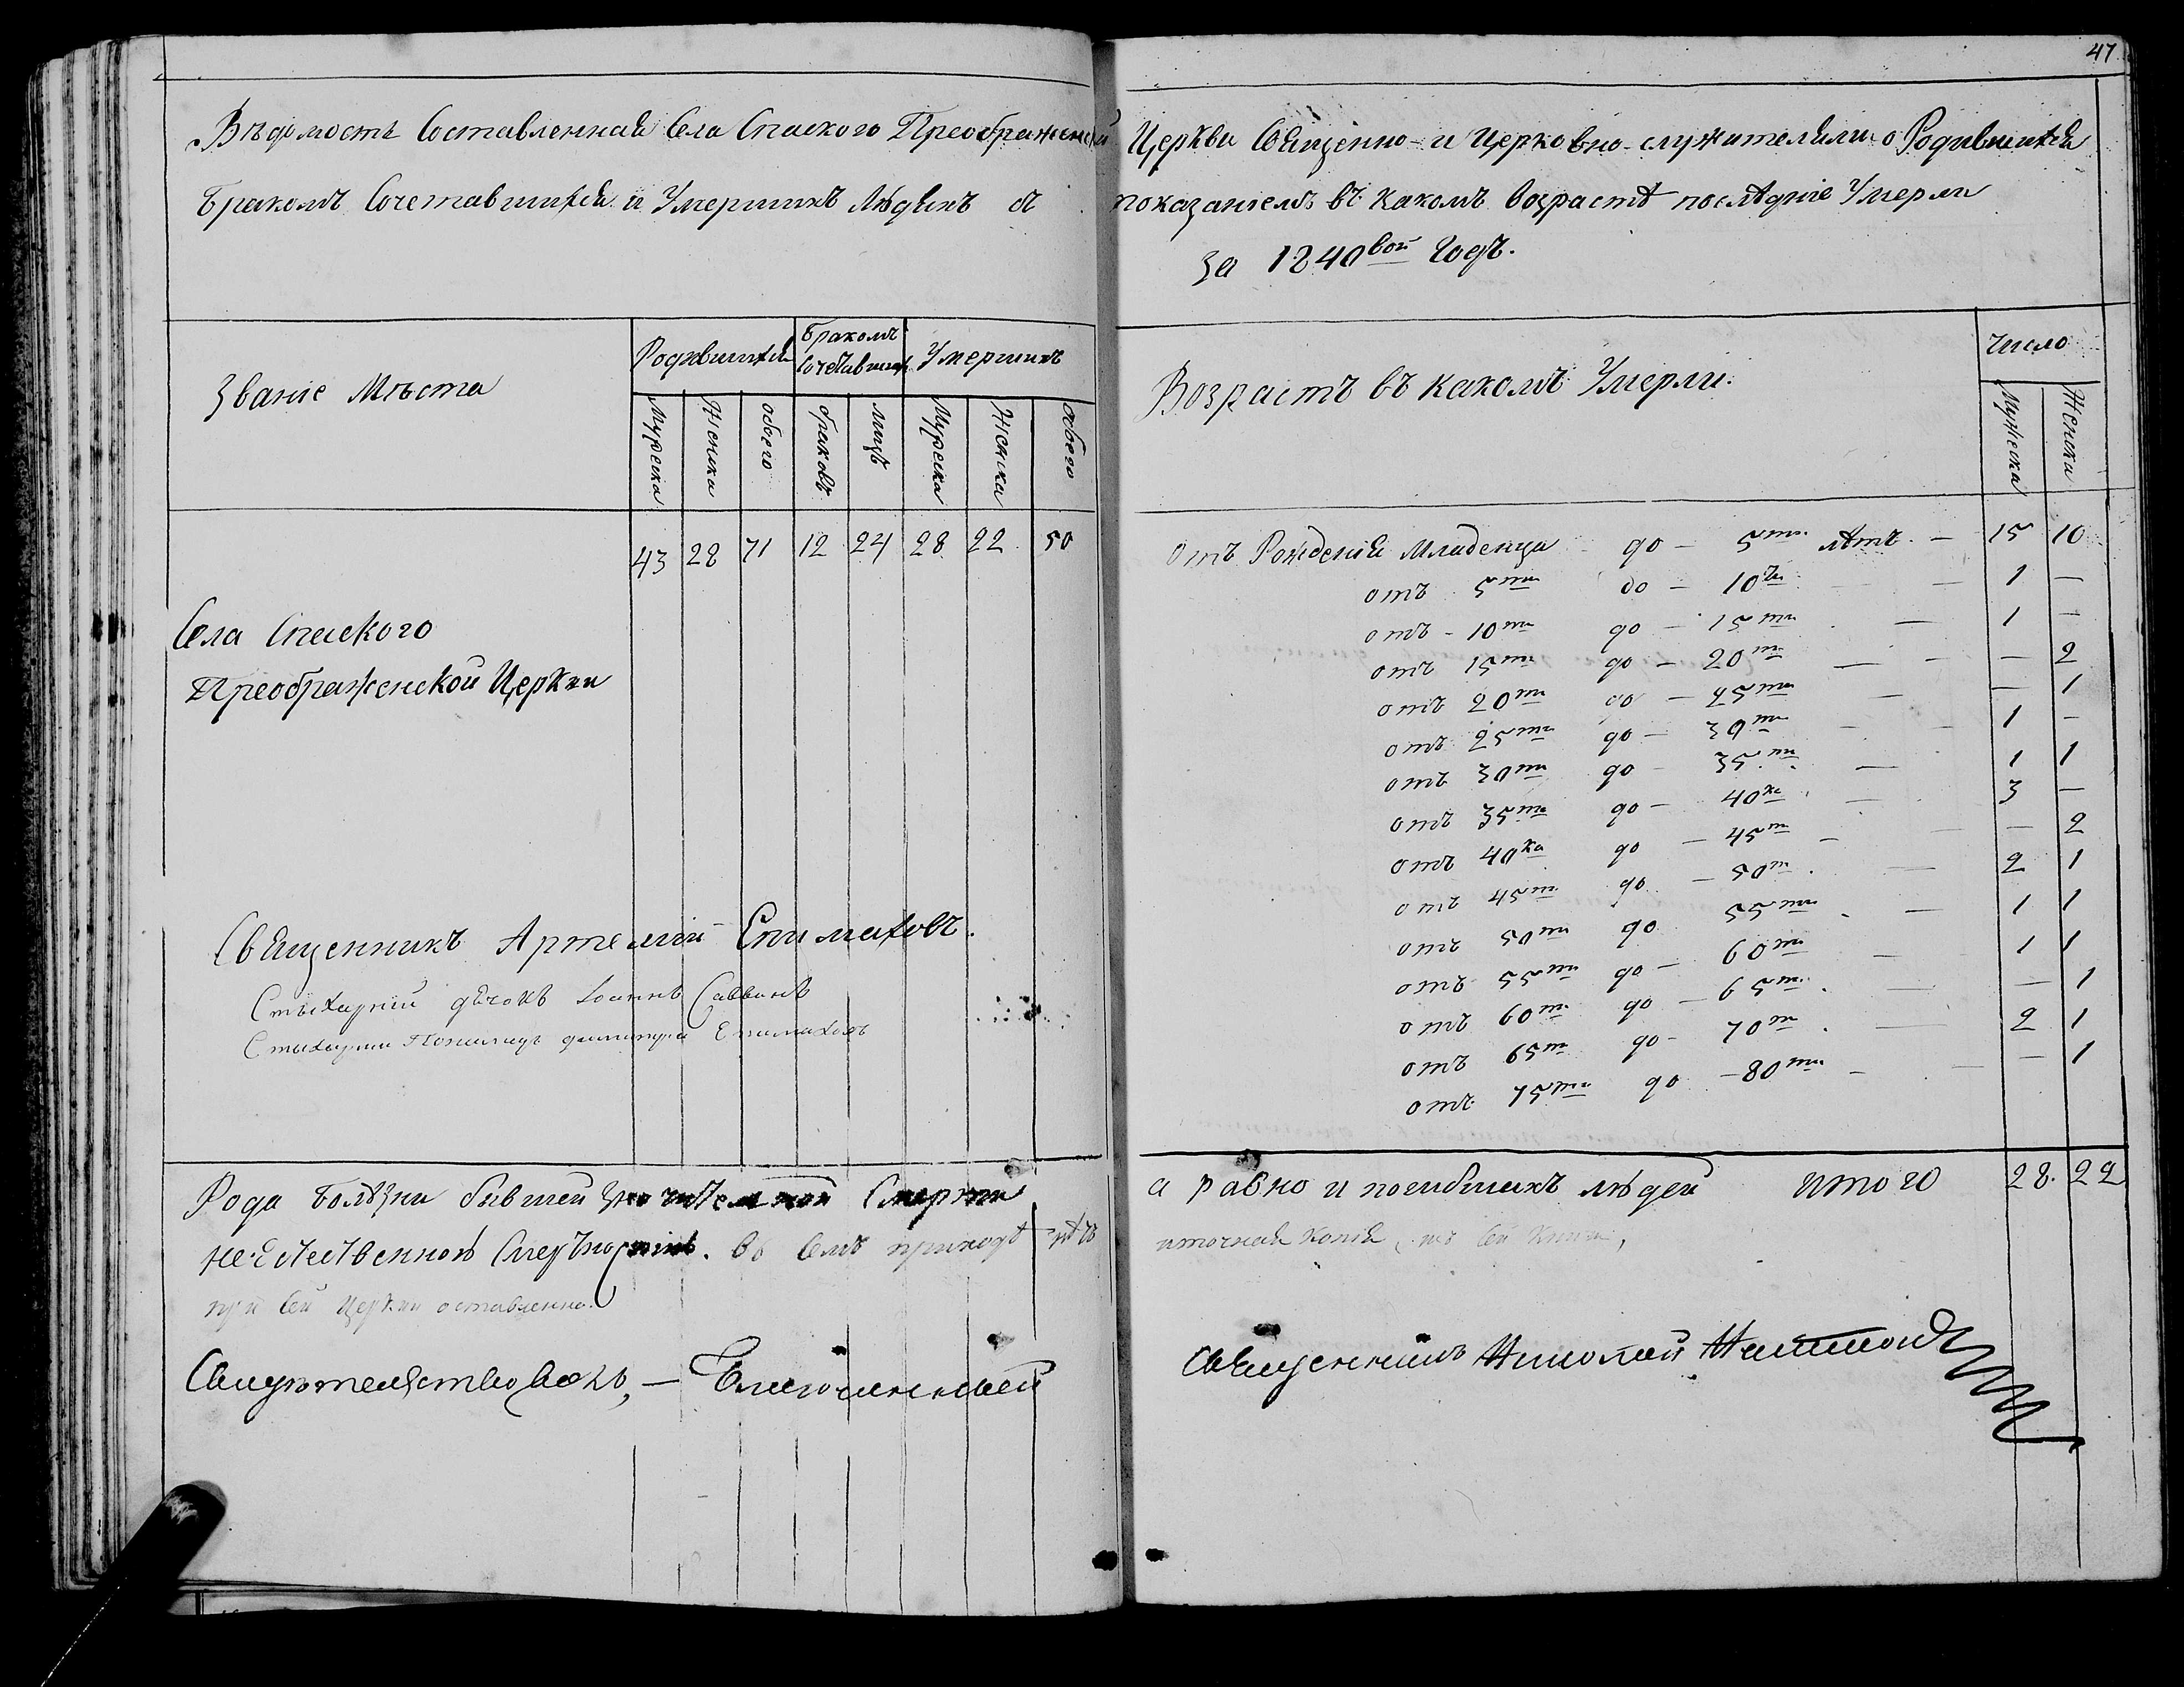 47
Вѣдомость Составленная Села Спаскаго Преображенской Церкви Священно- и Церковно-служителями о Родившихся
Бракомъ Сочетавшихся и Умершихъ Людяхъ съ показаніемъ въ какомъ возрастѣ послѣдніе Умерли
За 1840вой Годъ.
Званіе Мѣста
Родившихся
Бракомъ Сочетавшихся
Умершихъ
Мужеска
Женска
обоего
браковъ
лицъ
Мужеска
Женска
обоего
43 28 71 12 24 28 22 50
Села Спаскаго
Преображенской Церкви
Священникъ Артемій Епимаховъ.
Стыхарный дьячокъ Іоаннъ Саввинъ
Стыхарный Пономарь Димитрій Епимаховъ
Рода Болѣзни бывшей Смерти
въ семъ приходѣ нѣтъ
при сей Церкви оставленна.
Свидѣтельствовалъ, — Благочинный
Возрастъ въ какомъ Умерли.
Число
Мужеска
Женска
Отъ Рожденія Младенца до — 5ти лѣтъ — 15 10
отъ 5ти до — 10ти — 1 —
отъ - 10ти до — 15ти — 1 —
отъ 15ти до — 20ти — — 2
отъ 20ти до — 25ти — — 1
отъ 25ти до — 30ти — 1 —
отъ 30ти до — 35ти — 1 1
отъ 35ти до — 40ка — 3 —
отъ 40ка до — 45ти — — 2
отъ 45ти до — 50ти — 2 1
отъ 50ти до 55ти — 1 1
отъ 55ти до — 60ти — 1 1
отъ 60ти до — 65ти — — 1
отъ 65ти до — 70ти — 2 1
отъ 75ти до — 80ти — — 1
а равно и погибшихъ людей Итого 28. 22
и точная копія, съ сей книги,
Священникъ Николай